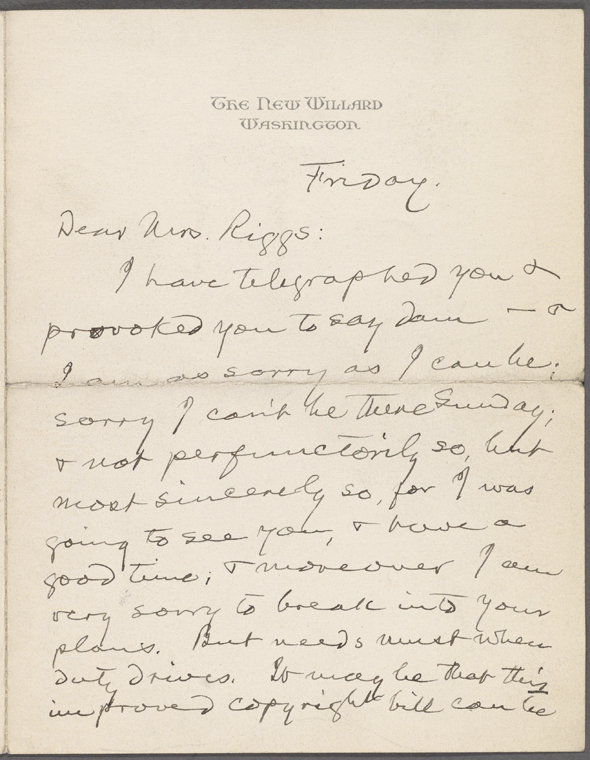 The New Willard
Washington
Friday.
Dear Mrs. Riggs:
I have telegraphed you &
provoked you to say dam — &
I am as sorry as I can be;
sorry I can't be there Sunday;
& not perfunctorily so, but
most sincerely so, for I was
going to see you, & have a
good time; & moreover I am
very sorry to break into your
plans. But needs must when
duty drives. It may be that this
improved copyright bill can be